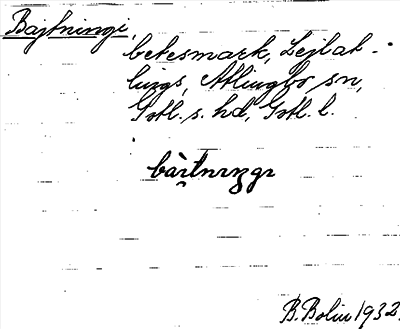 Bajtningi,
betesmark, Lejlak-
lings, Atlingbo sn,
Gotl. s. hd, Gotl. l.
bàɪ̯tnɪŋgɪ
B. Bolin 1932.